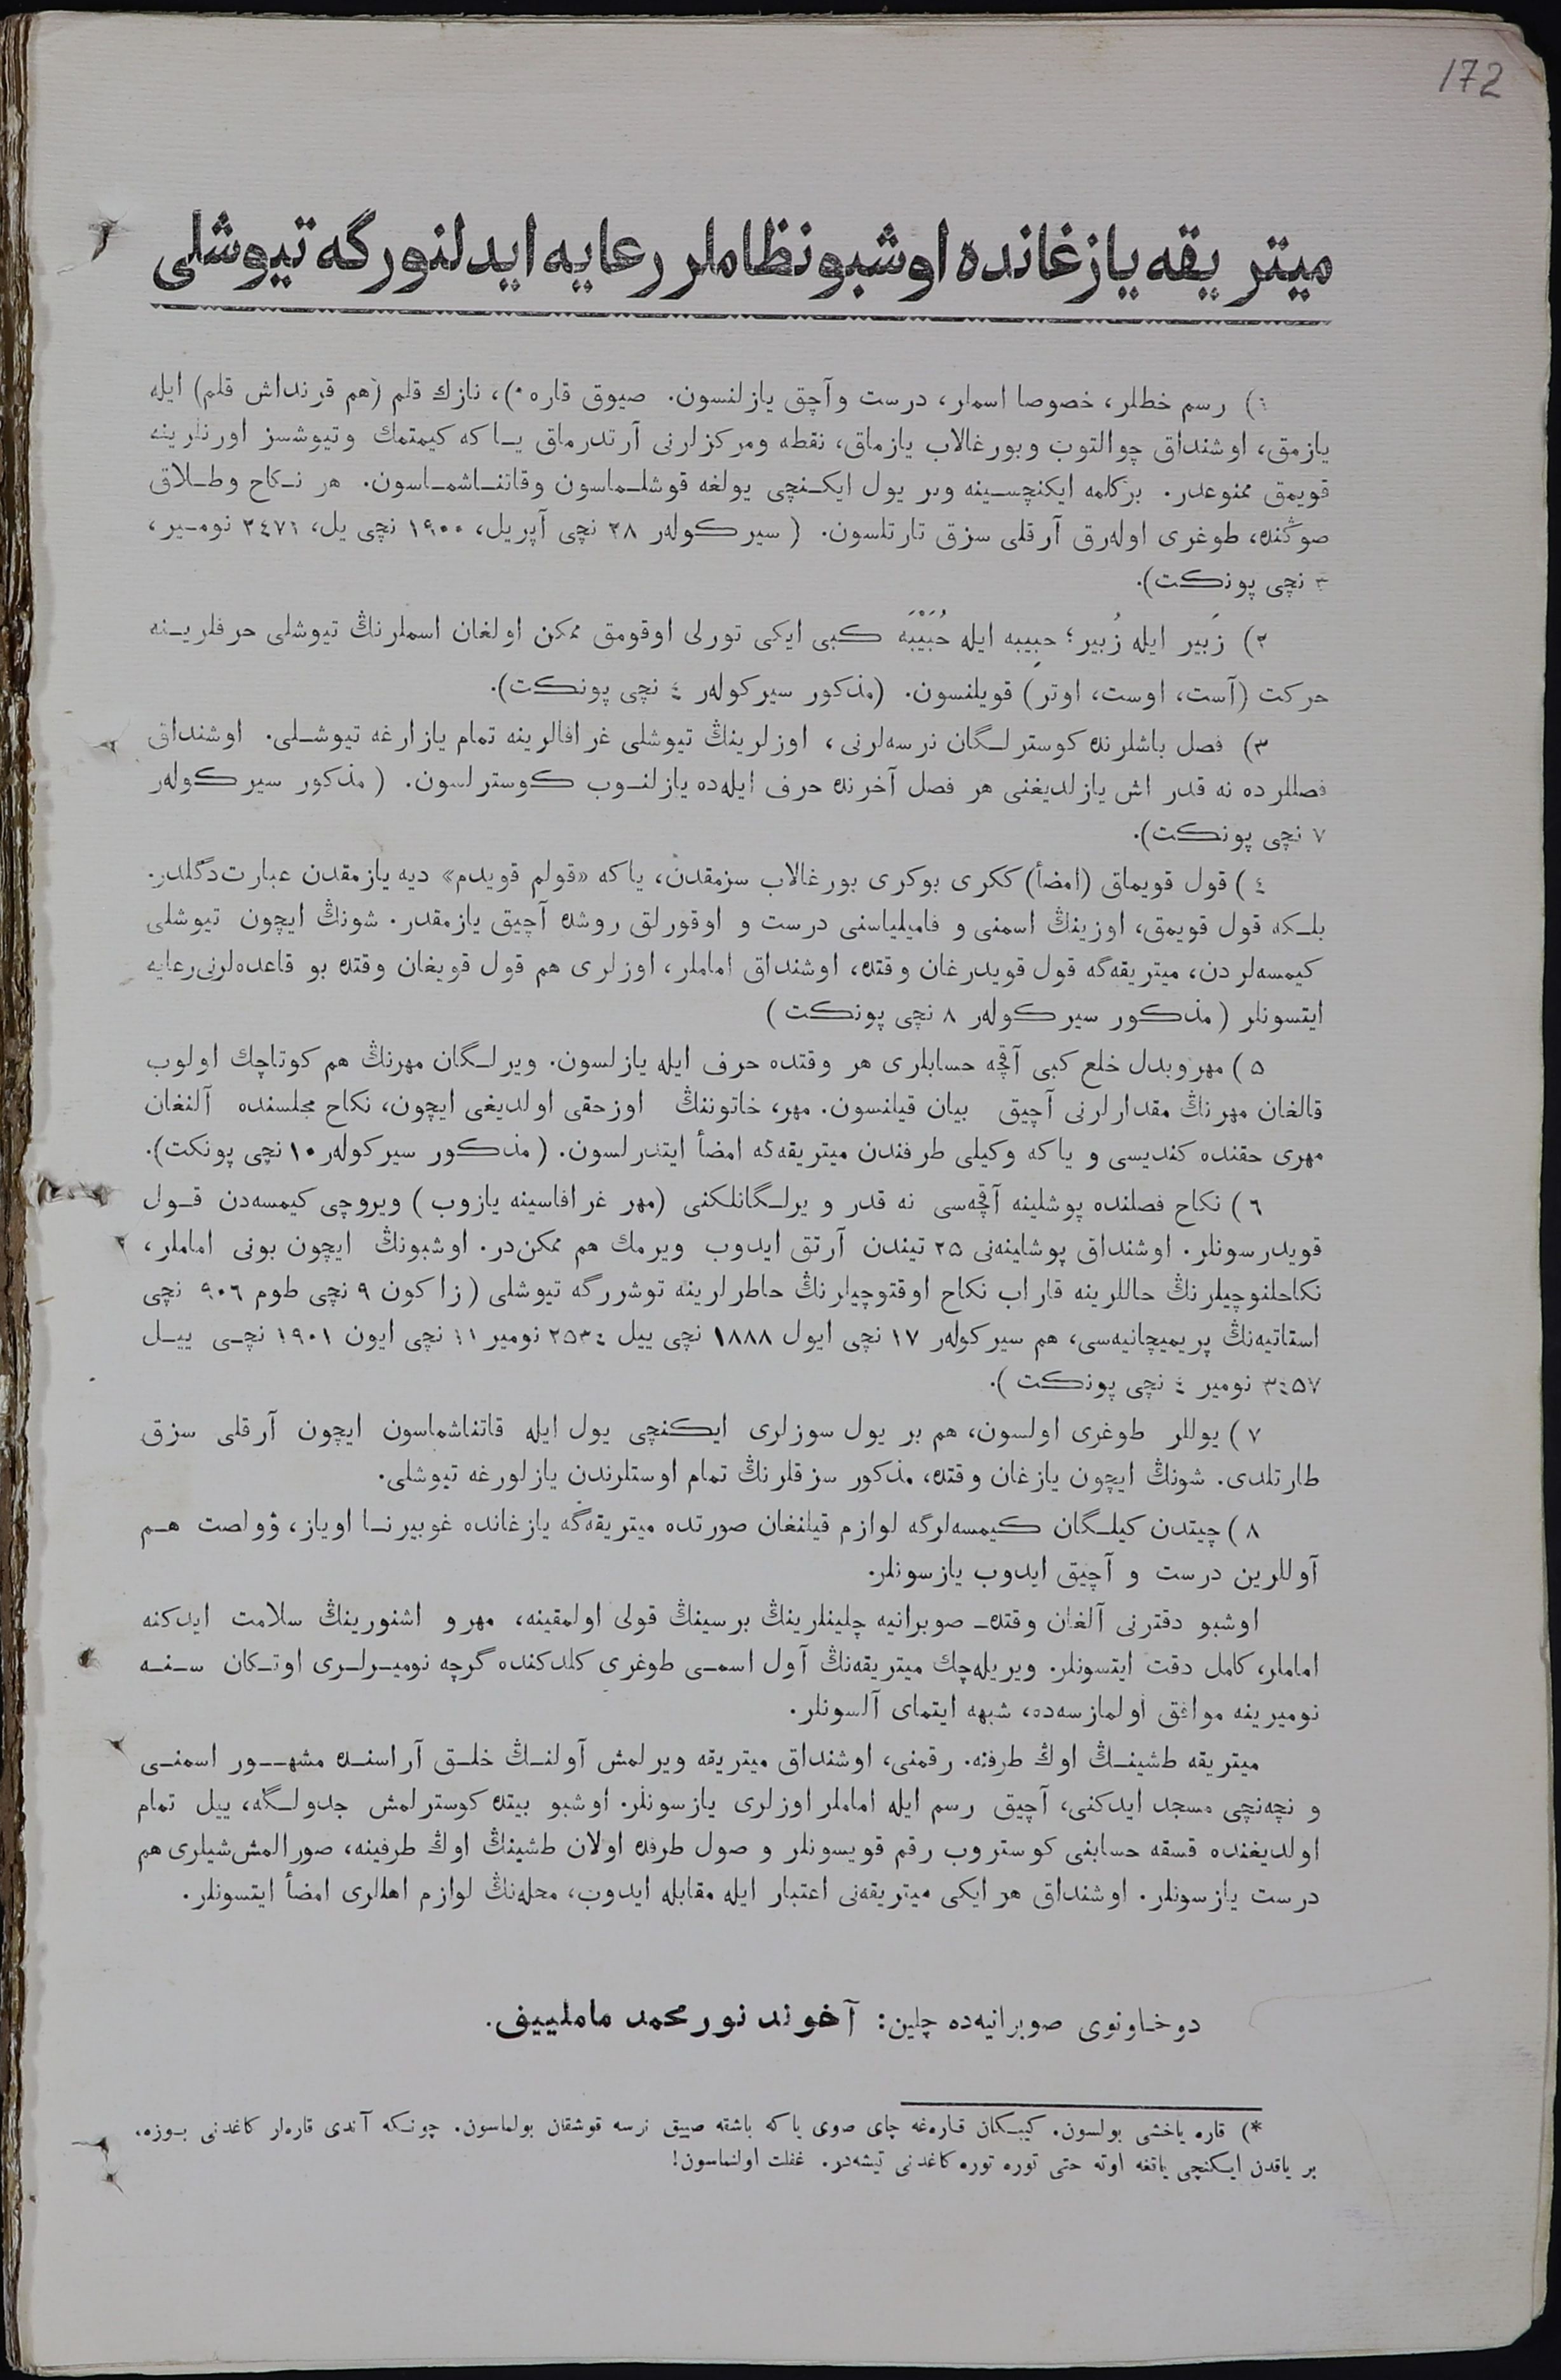 172
ميتريقه يازغانده اوشبو نظاملر رعايه ايدلنورگه تيوشلى
١) رسم خطلر، خصوصا اسملر، درست وآچق يازلنسون. صيوق قاره *)، نازك قلم (هم قرنداش قلم) ايله
يازمق، اوشنداق چوالتوب وبورغالاب يازماق، نقطه ومركزلرنى آرتدرماق يـاكه كيمتمك وتيوشسز اورنلرينه
قويمق ممنوعدر. بركلمه ايكنچسـينه وبر يول ايكـنچى يولغه قوشلـماسون وقاتنـاشمـاسون. هر نـكاح وطـلاق
صوڭنده، طوغرى اولەرق آرقلى سزق تارتلسون. (سيركولەر ٢٨ نچى آپريل، ١٩٠٠ نچى يل، ٢٤٧١ نومـير،
٣ نچى پونكت).
٢) زَبير ايله زُبير؛ حبِيبه ايله حُبَيْبَه كبى ايكى تورلى اوقومق ممكن اولغان اسملرنڭ تيوشلى حرفلريـنه
حركت (آست، اوست، اوتر) قويلنسون. (مذكور سيركولەر ٤ نچى پونكت).
٣) فصل باشلرنده كوسترلـگان نرسەلرنى، اوزلرينڭ تيوشلى غرافالرينه تمام يازارغه تيوشـلى. اوشنداق
فصللرده نه قدر اش يازلديغنى هر فصل آخرنده حرف ايلەده يازلنـوب كوسترلسون. (مذكور سيركولەر
٧ نچى پونكت).
٤) قول قويماق (امضأ) ككرى بوكرى بورغالاب سزمقدن، ياكه «قولم قويدم» ديه يازمقدن عبارت دگلدر.
بلـكه قول قويمق، اوزينڭ اسمنى و فاميلياسنى درست و اوقورلق روشده آچيق يازمقدر. شونڭ ايچون تيوشلى
كيمسەلردن، ميتريقەگە قول قويدرغان وقتده، اوشنداق اماملر، اوزلرى هم قول قويغان وقتده بو قاعدەلرنى رعايه
ايتسونلر (مذكور سيركولەر ٨ نچى پونكت)
٥) مهر وبدل خلع كبى آقچه حسابلرى هر وقتده حرف ايله يازلسون. ويرلـگان مهرنڭ هم كوتاچك اولوب
قالغان مهرنڭ مقدارلرنى آچيق بيان قيلنسون. مهر، خاتوننڭ اوزحقى اولديغى ايچون، نكاح مجلسنده آلنغان
مهرى حقنده كنديسى و ياكه وكيلى طرفندن ميتريقەگە امضأ ايتدرلسون. (مذكور سيركولەر ١٠ نچى پونكت).
٦) نكاح فصلنده پوشلينه آقچەسى نه قدر و يرلـگانلكنى (مهر غرافاسينه يازوب) ويروچى كيمسەدن قـول
قويدرسونلر. اوشنداق پوشلينەنى ٢٥ تيندن آرتق ايدوب ويرمك هم ممكن در. اوشبونڭ ايچون بونى اماملر،
نكاحلنوچيلرنڭ حاللرينه قاراب نكاح اوقتوچيلرنڭ خاطرلرينه توشررگه تيوشلى (زاكون ٩ نچى طوم ٩٠٦ نچى
استاتيەنڭ پريميچانيەسى، هم سيركولەر ١٧ نچى ايول ١٨٨٨ نچى ييل ٢٥٣٤ نومير ١١ نچى ايون ١٩٠١ نچـى ييـل
٣٤٥٧ نومير ٤ نچى پونكت).
٧) يوللر طوغرى اولسون، هم بر يول سوزلرى ايكنچى يول ايله قاتناشماسون ايچون آرقلى سزق
طارتلدى. شونڭ ايچون يازغان وقتده، مذكور سزقلرنڭ تمام اوستلرندن يازلورغه تيوشلى.
٨) چيتدن كيلـگان كيمسەلرگه لوازم قيلنغان صورتده ميتريقەگە يازغانده غوبيرنـا اوياز، ؤولصت هـم
آوللرين درست و آچيق ايدوب يازسونلر.
اوشبو دفترنى آلغان وقتده ـ صوبرانيه چلينلرينڭ برسينڭ قولى اولمقينه، مهر و اشنورينڭ سلامت ايدكنه
اماملر، كامل دقت ايتسونلر. ويريلەچك ميتريقەنڭ آول اسمـى طوغرى كلدكنده گرچه نوميـرلـرى اوتـكان سـنـه
نوميرينه موافق اولمازسەده، شبهه ايتماى آلسونلر.
ميتريقه طشينـڭ اوڭ طرفنه. رقمنى، اوشنداق ميتريقه ويرلمش آولنـڭ خلـق آراسنـده مشهــور اسمنـى
و نچەنچى مسجد ايدكنى، آچيق رسم ايله اماملر اوزلرى يازسونلر. اوشبو بيتده كوسترلمش جدولـگه، ييل تمام
اولديغنده قسقه حسابنى كوستروب رقم قويسونلر و صول طرفده اولان طشينڭ اوڭ طرفينه، صورالمش شيلرى هم
درست يازسونلر. اوشنداق هر ايكى ميتريقەنى اعتبار ايله مقابله ايدوب، محلەنڭ لوازم اهللرى امضأ ايتسونلر.
دوخاونوى صوبرانيەده چلين: آخوند نورمحمد ماملييف.
*) قاره ياخشى بولسون. كيبـكان قـارەغه چاى صوى ياكه باشقه صييق نرسه قوشقان بولماسون. چونـكه آندى قارەلر كاغدنى بـوزه،
بر ياقدن ايـكنچى ياقغه اوته حتى توره توره كاغدنى تيشەدر. غفلت اولنماسون!